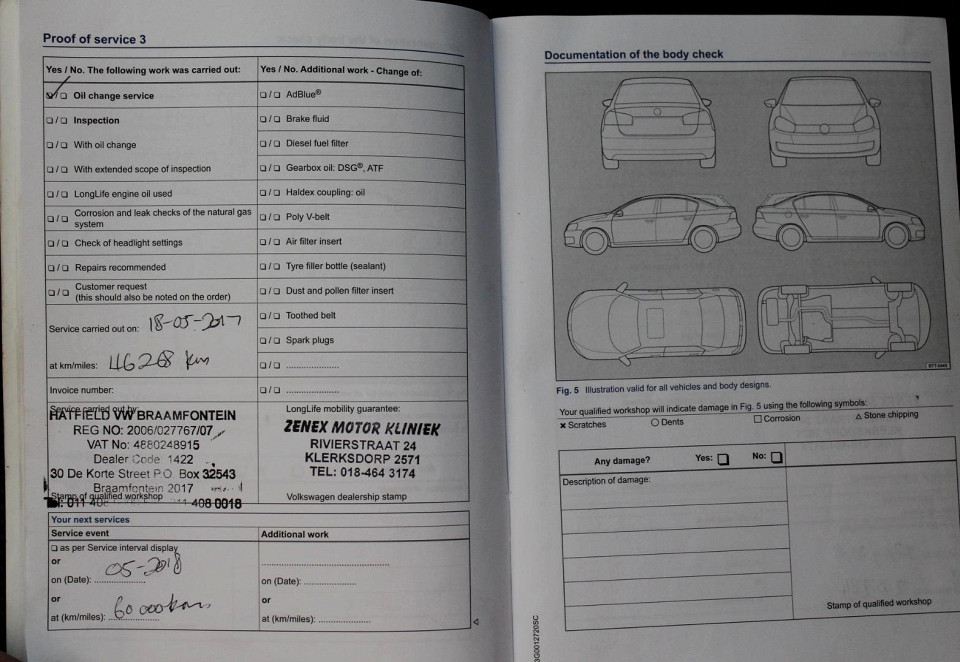 Proof of service 3
Yes / No. The following work was carried out:
☑/☐ Oil change service
☐/☐ Inspection
☐/☐ With oil change
☐/☐ With extended scope of inspection
☐/☐ LongLife engine oil used
☐/☐ Corrosion and leak checks of the natural gas
system
☐/☐ Check of headlight settings
☐/☐ Repairs recommended
☐/☐ Customer request
(this should also be noted on the order)
Service carried out on: 18-05-2017
at km/miles: 46268 km
Invoice number:
Service carried out by:
HATFIELD VW BRAAMFONTEIN
REG NO: 2006/027767/07
VAT No: 4880248915
Dealer Code: 1422
30 De Korte Street P.O. Box 32543
Braamfontein 2017
Stamp of qualified workshop
Tel: 011 408 0018
Yes / No. Additional work - Change of:
☐/☐ AdBlue®
☐/☐ Brake fluid
☐/☐ Diesel fuel filter
☐/☐ Gearbox oil: DSG®, ATF
☐/☐ Haldex coupling: oil
☐/☐ Poly V-belt
☐/☐ Air filter insert
☐/☐ Tyre filler bottle (sealant)
☐/☐ Dust and pollen filter insert
☐/☐ Toothed belt
☐/☐ Spark plugs
☐/☐ ....................
☐/☐ ....................
LongLife mobility guarantee:
ZENEX MOTOR KLINIEK
RIVIERSTRAAT 24
KLERKSDORP 2571
TEL: 018-464 3174
Volkswagen dealership stamp
Your next services
Service event
☐ as per Service interval display
or
on (Date): 05-2018
or
at (km/miles): 60 000 kms
Additional work
on (Date): ....................
or
at (km/miles): ....................
Documentation of the body check
Fig. 5 Illustration valid for all vehicles and body designs.
Your qualified workshop will indicate damage in Fig. 5 using the following symbols:
✖ Scratches ○ Dents □ Corrosion △ Stone chipping
Any damage? Yes: ☐ No: ☐
Description of damage:
Stamp of qualified workshop
3G0012720SC